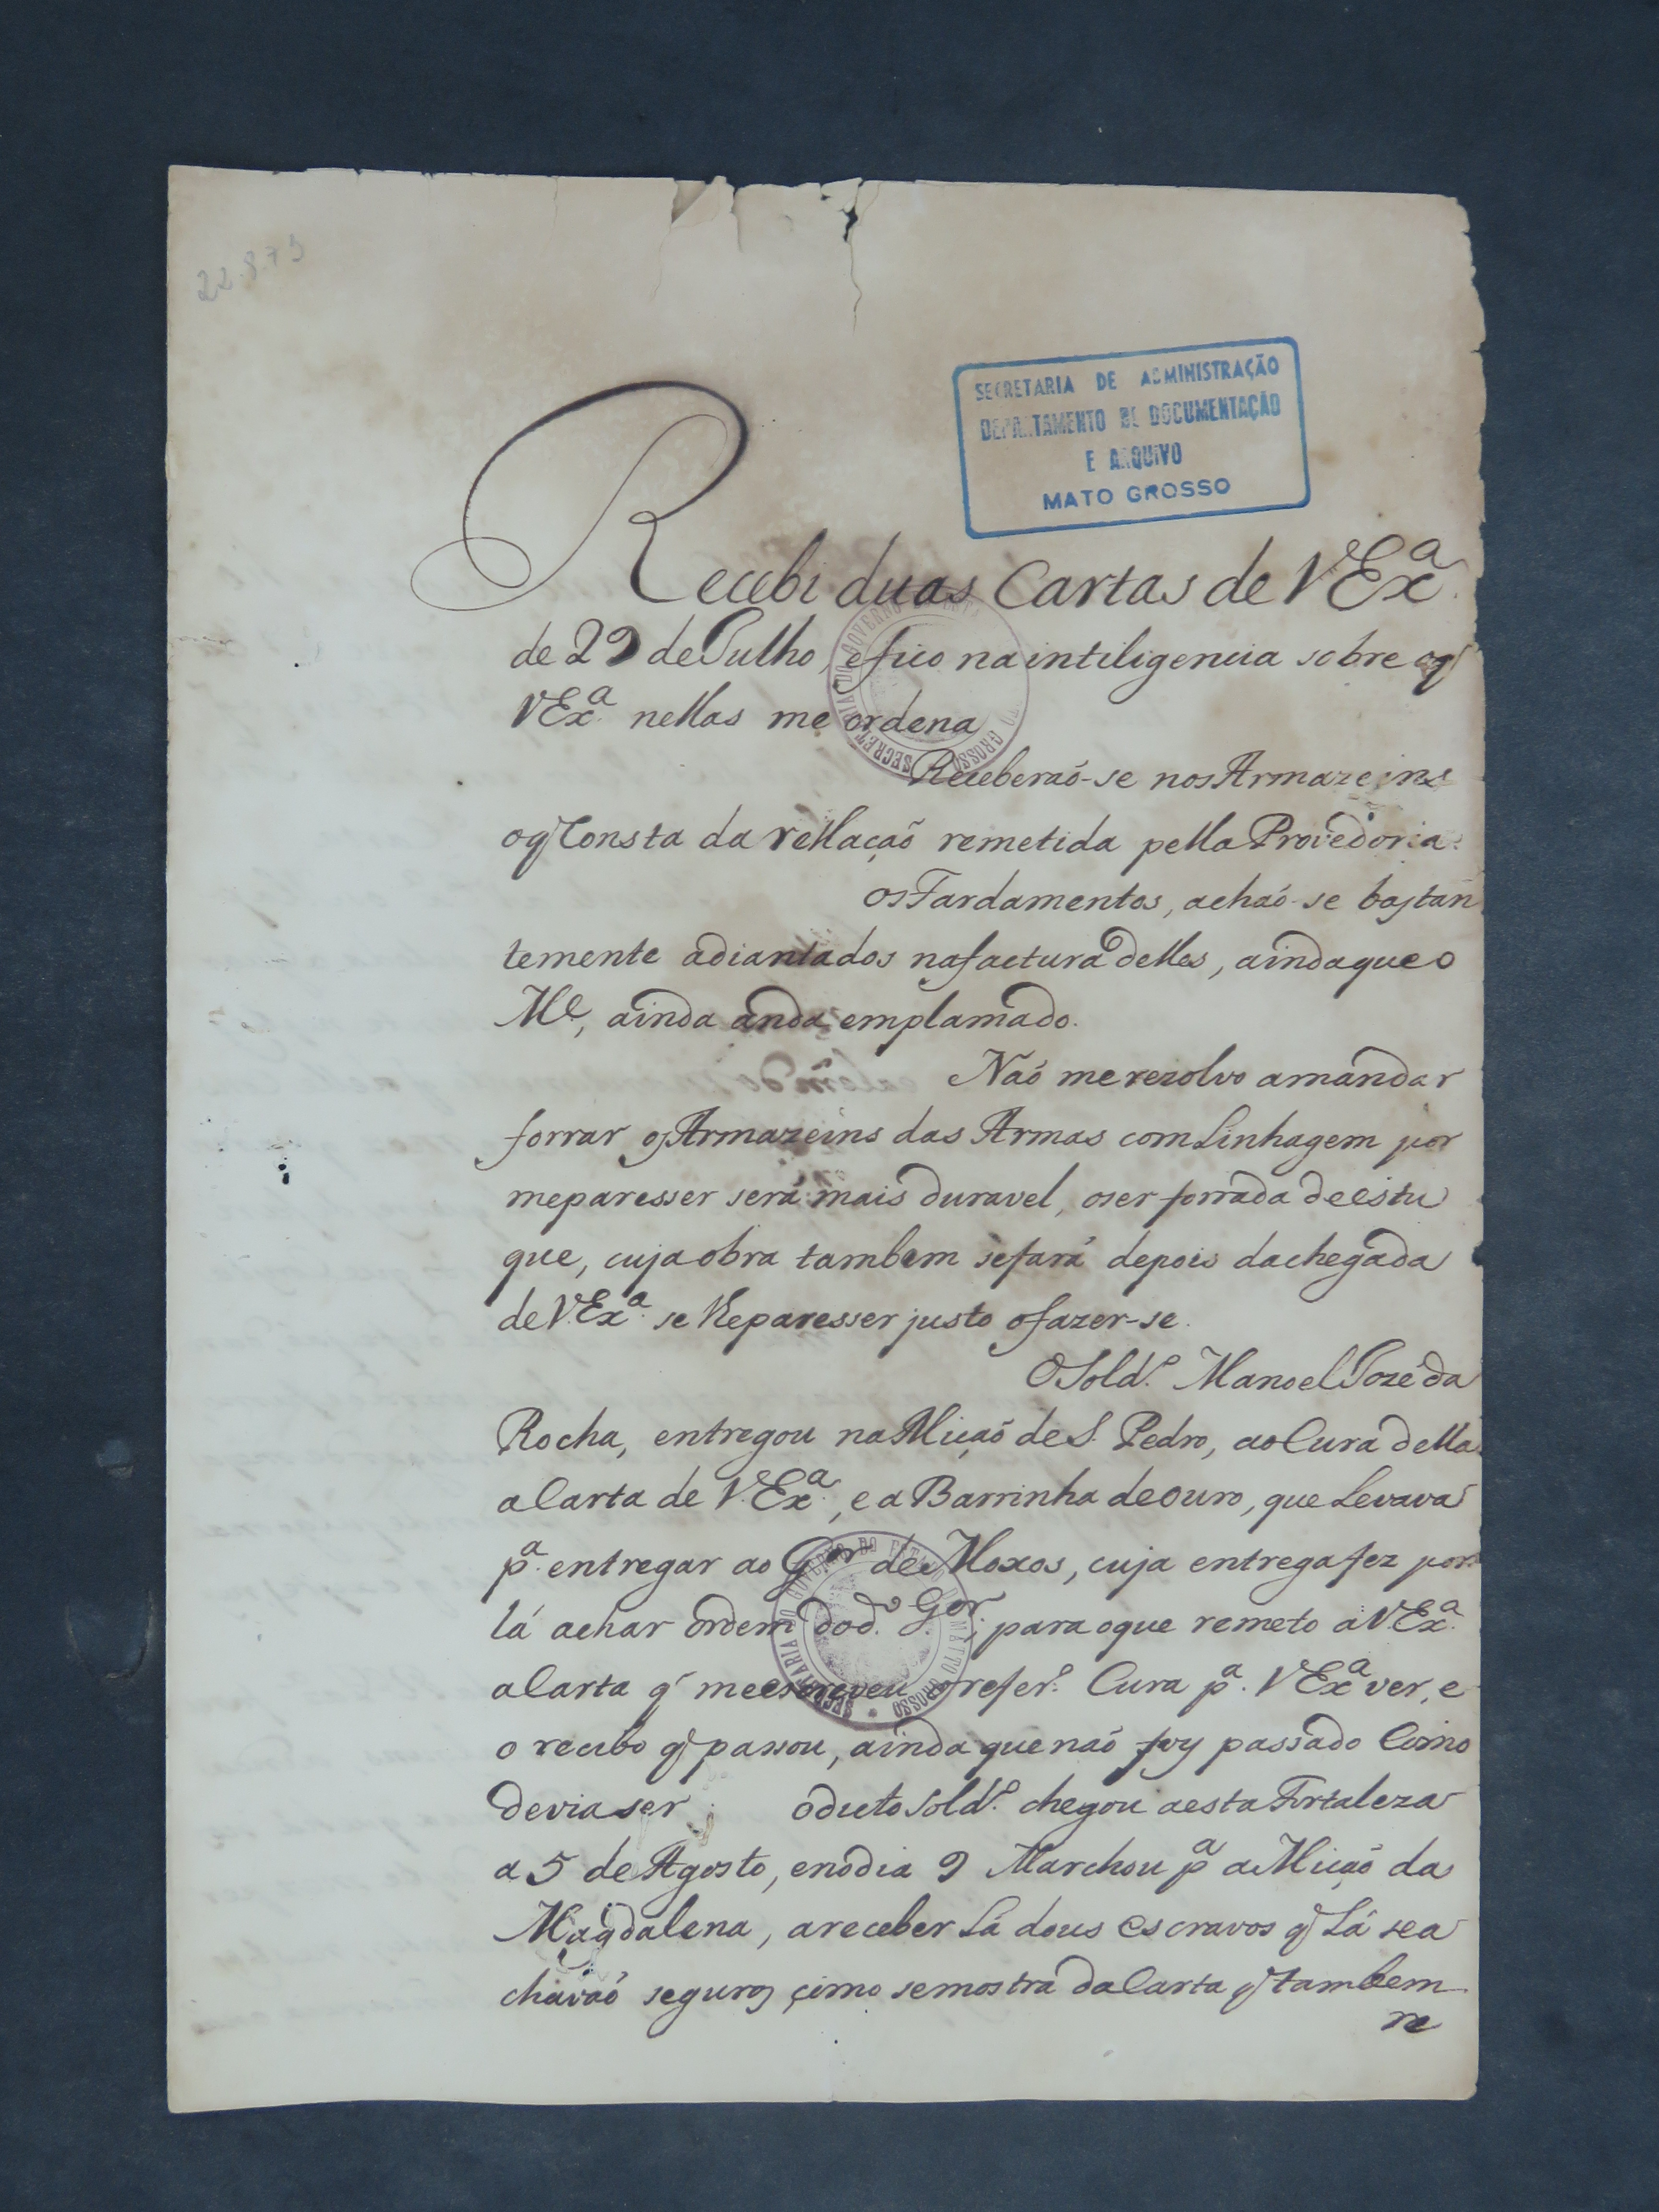 22.8.79
SECRETARIA DE ADMINISTRAÇÃO
DEPARTAMENTO DE DOCUMENTAÇÃO
E ARQUIVO
MATO GROSSO
Recebi duas Cartas de V.Exª.
de 29 de Julho, e fico na intiligencia sobre oq̃
V.Exª. nellas me ordena
Receberaõ-se nos Armazeins
oq̃ Consta da rellaçaõ remetida pella Provedoria.
Os Fardamentos, achaõ-se bastan
temente adiantados na factura delles, ainda que o
Mᵉ, ainda anda emplamado.
Naõ me rezolvo a mandar
forrar os Armazeins das Armas com Linhagem por
me paresser será mais duravel, o ser forrada de estu
que, cuja obra tambem se fará depois da chegada
de V.Exª. se lhe paresser justo o fazer-se.
O Soldº. Manoel Jozé da
Rocha, entregou na Miçaõ de S. Pedro, ao Cura della
a Carta de V.Exª., e a Barrinha de ouro, que Levava
pª. entregar ao Gᵒʳ de Moxos, cuja entrega fez por
lá achar ordem do dº. Gᵒʳ., para o que remeto a V.Exª.
a Carta q̃ me escreveu o referº. Cura pª. V.Exª ver, e
o recibo q̃ passou, ainda que naõ foy passado Como
devia ser. O dito Soldº. chegou a esta Fortaleza
a 5 de Agosto, e no dia 9 Marchou pª a Miçaõ da
Magdalena, a receber Lá dous escravos q̃ Lá se a
chavaõ seguros como se mostra da Carta q̃ tambem
re
SECRETARIA DO GOVERNO DO ESTADO DE MATTO GROSSO